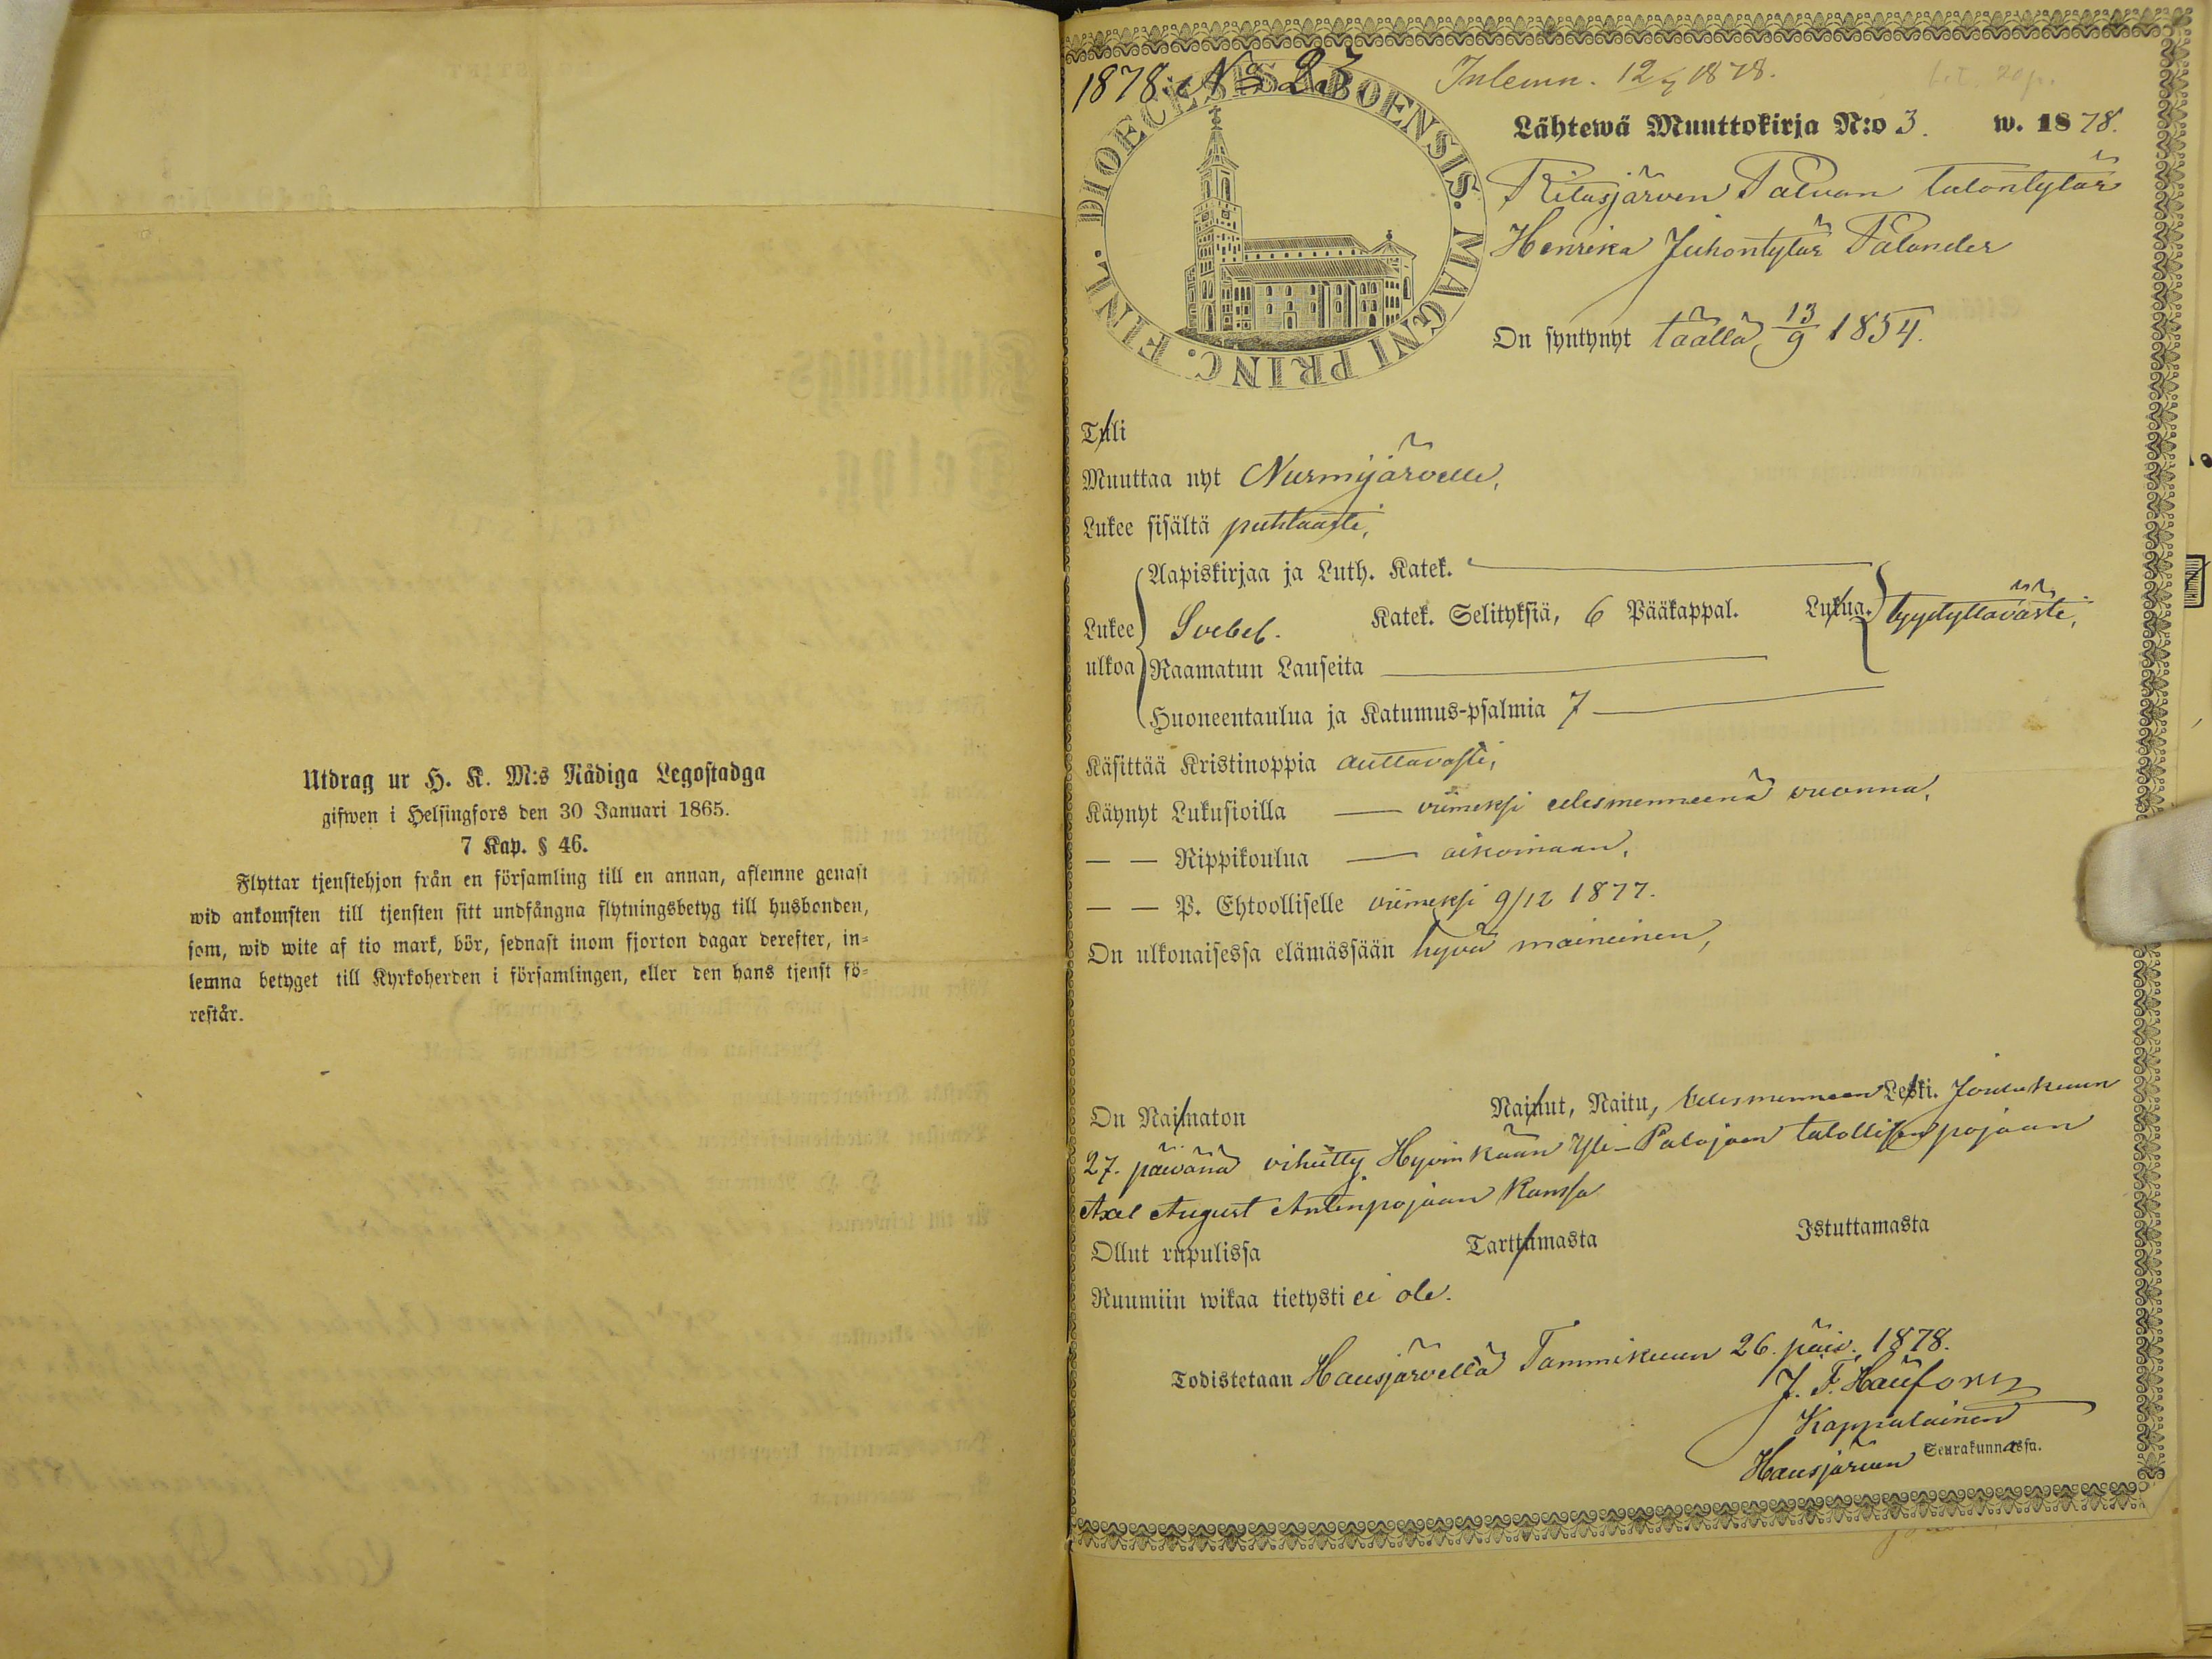 Utdrag ur H. K. M:s Nådiga Legostadga
gifwen i Helsingfors den 30 Januari 1865.
7 Kap. § 46.
Flyttar tjenstehjon från en församling till en annan, aflemne genast
wid ankomsten till tjensten sitt undfångna flytningsbetyg till husbonden,
som, wid wite af tio mark, bör, sednast inom fjorton dagar derefter, in-
lemna betyget till Kyrkoherden i församlingen, eller den hans tjenst fö-
restår.
1878. No 23
Inlemn. 12/4 1878.
DIOECESIS ABOENSIS. MAGNI PRINC. FINL.
Lähtewä Muuttokirja N:o 3. w. 1878.
Ritasjärven Palvan talontytär
Henrika Juhontytär Palander
On syntynyt täällä 13/9 1854.
Tuli
Muuttaa nyt Nurmijärvelle,
Lukee sisältä puhtaasti,
Lukee ulkoa
Aapiskirjaa ja Luth. Katek.
Svebel. Katek. Selityksiä, 6 Pääkappal. Lukua. tyydyttävästi,
Raamatun Lauseita
Huoneentaulua ja Katumus-psalmia 7
Käsittää Kristinoppia auttavasti,
Käynyt Lukusioilla — viimeksi edesmenneenä vuonna,
— — Rippikoulua — aikoinaan,
— — P. Ehtoolliselle viimeksi 9/12 1877.
On ulkonaisessa elämässään hyvä maineinen,
On Naimaton Nainut, Naitu, edesmenneen Leski. Joulukuun
27. päivänä vihitty Hyvinkään Yli-Palojoen talollisen pojaan
Axel August Antinpojaan kanssa
Ollut rupulissa Tarttumasta Istuttamasta
Ruumiin wikaa tietysti ei ole.
Todistetaan Hausjärvellä Tammikuun 26. päiv. 1878.
J. F. Häufors
Kappalainen
Hausjärven Seurakunnassa.